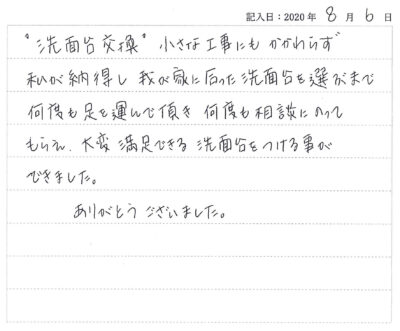 記入日：2020年 8月 6日
"洗面台交換" 小さな工事にもかかわらず
私が納得し 我が家に合った洗面台を選ぶまで
何度も足を運んで頂き 何度も相談にのって
もらえ、大変満足できる洗面台をつける事が
できました。
ありがとうございました。